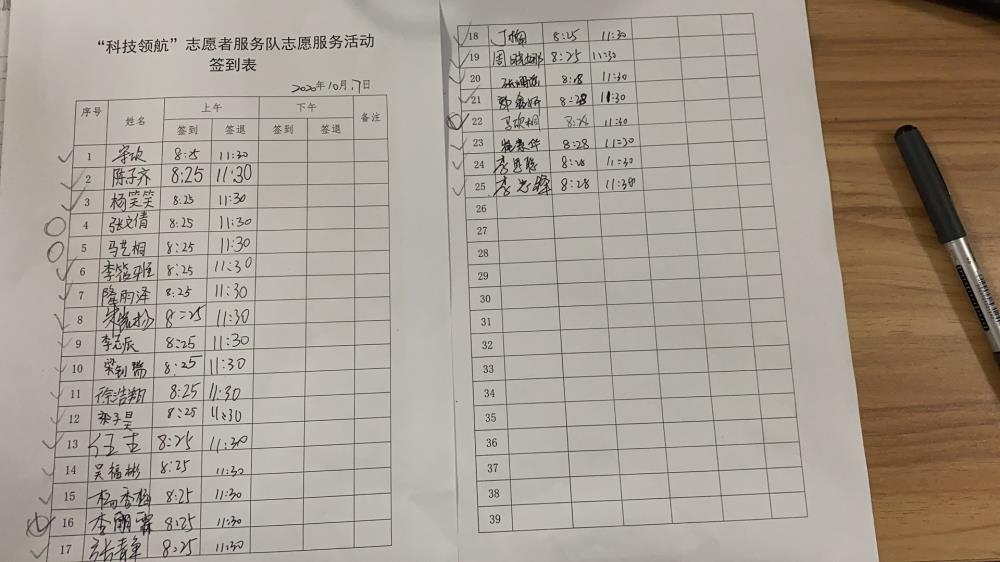 “科技领航”志愿者服务队志愿服务活动
签到表
2020年10月17日
序号 姓名 上午 下午 备注
签到 签退 签到 签退
1 8:25 11:30
2 陈子齐 8:25 11:30
3 杨笑笑 8:25 11:30
4 张文倩 8:25 11:30
5 马艺桐 8:25 11:30
6 8:25 11:30
7 隆雨泽 8:25 11:30
8 8:25 11:30
9 李志辰 8:25 11:30
10 8:25 11:30
11 徐浩翔 8:25 11:30
12 8:25 11:30
13 任杰 8:25 11:30
14 吴福彬 8:25 11:30
15 杨香梅 8:25 11:30
16 李雨霖 8:25 11:30
17 8:25 11:30
18 8:25 11:30
19 周晓娜 8:25 11:30
20 8:28 11:30
21 8:28 11:30
22 8:28 11:30
23 8:28 11:30
24 8:28 11:30
25 李忠锋 8:28 11:30
26
27
28
29
30
31
32
33
34
35
36
37
38
39